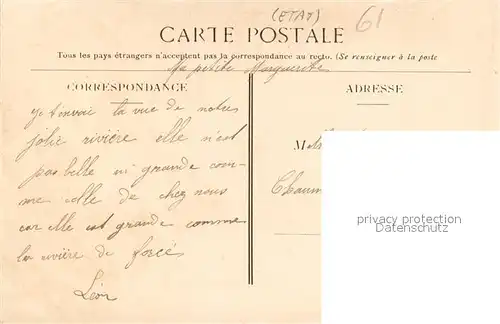 (ETAT)
61
CARTE POSTALE
Tous les pays étrangers n'acceptent pas la correspondance au recto. (Se renseigner à la poste
Ma petite Marguerite
CORRESPONDANCE
ADRESSE
je t'envoi ta vue de notres
jolie rivière elle n'est
M
pas belle ni grande com-
Chaum
me celle de chez nous
car elle est grande comme
la rivière de forcés
Léon
privacy protection
Datenschutz